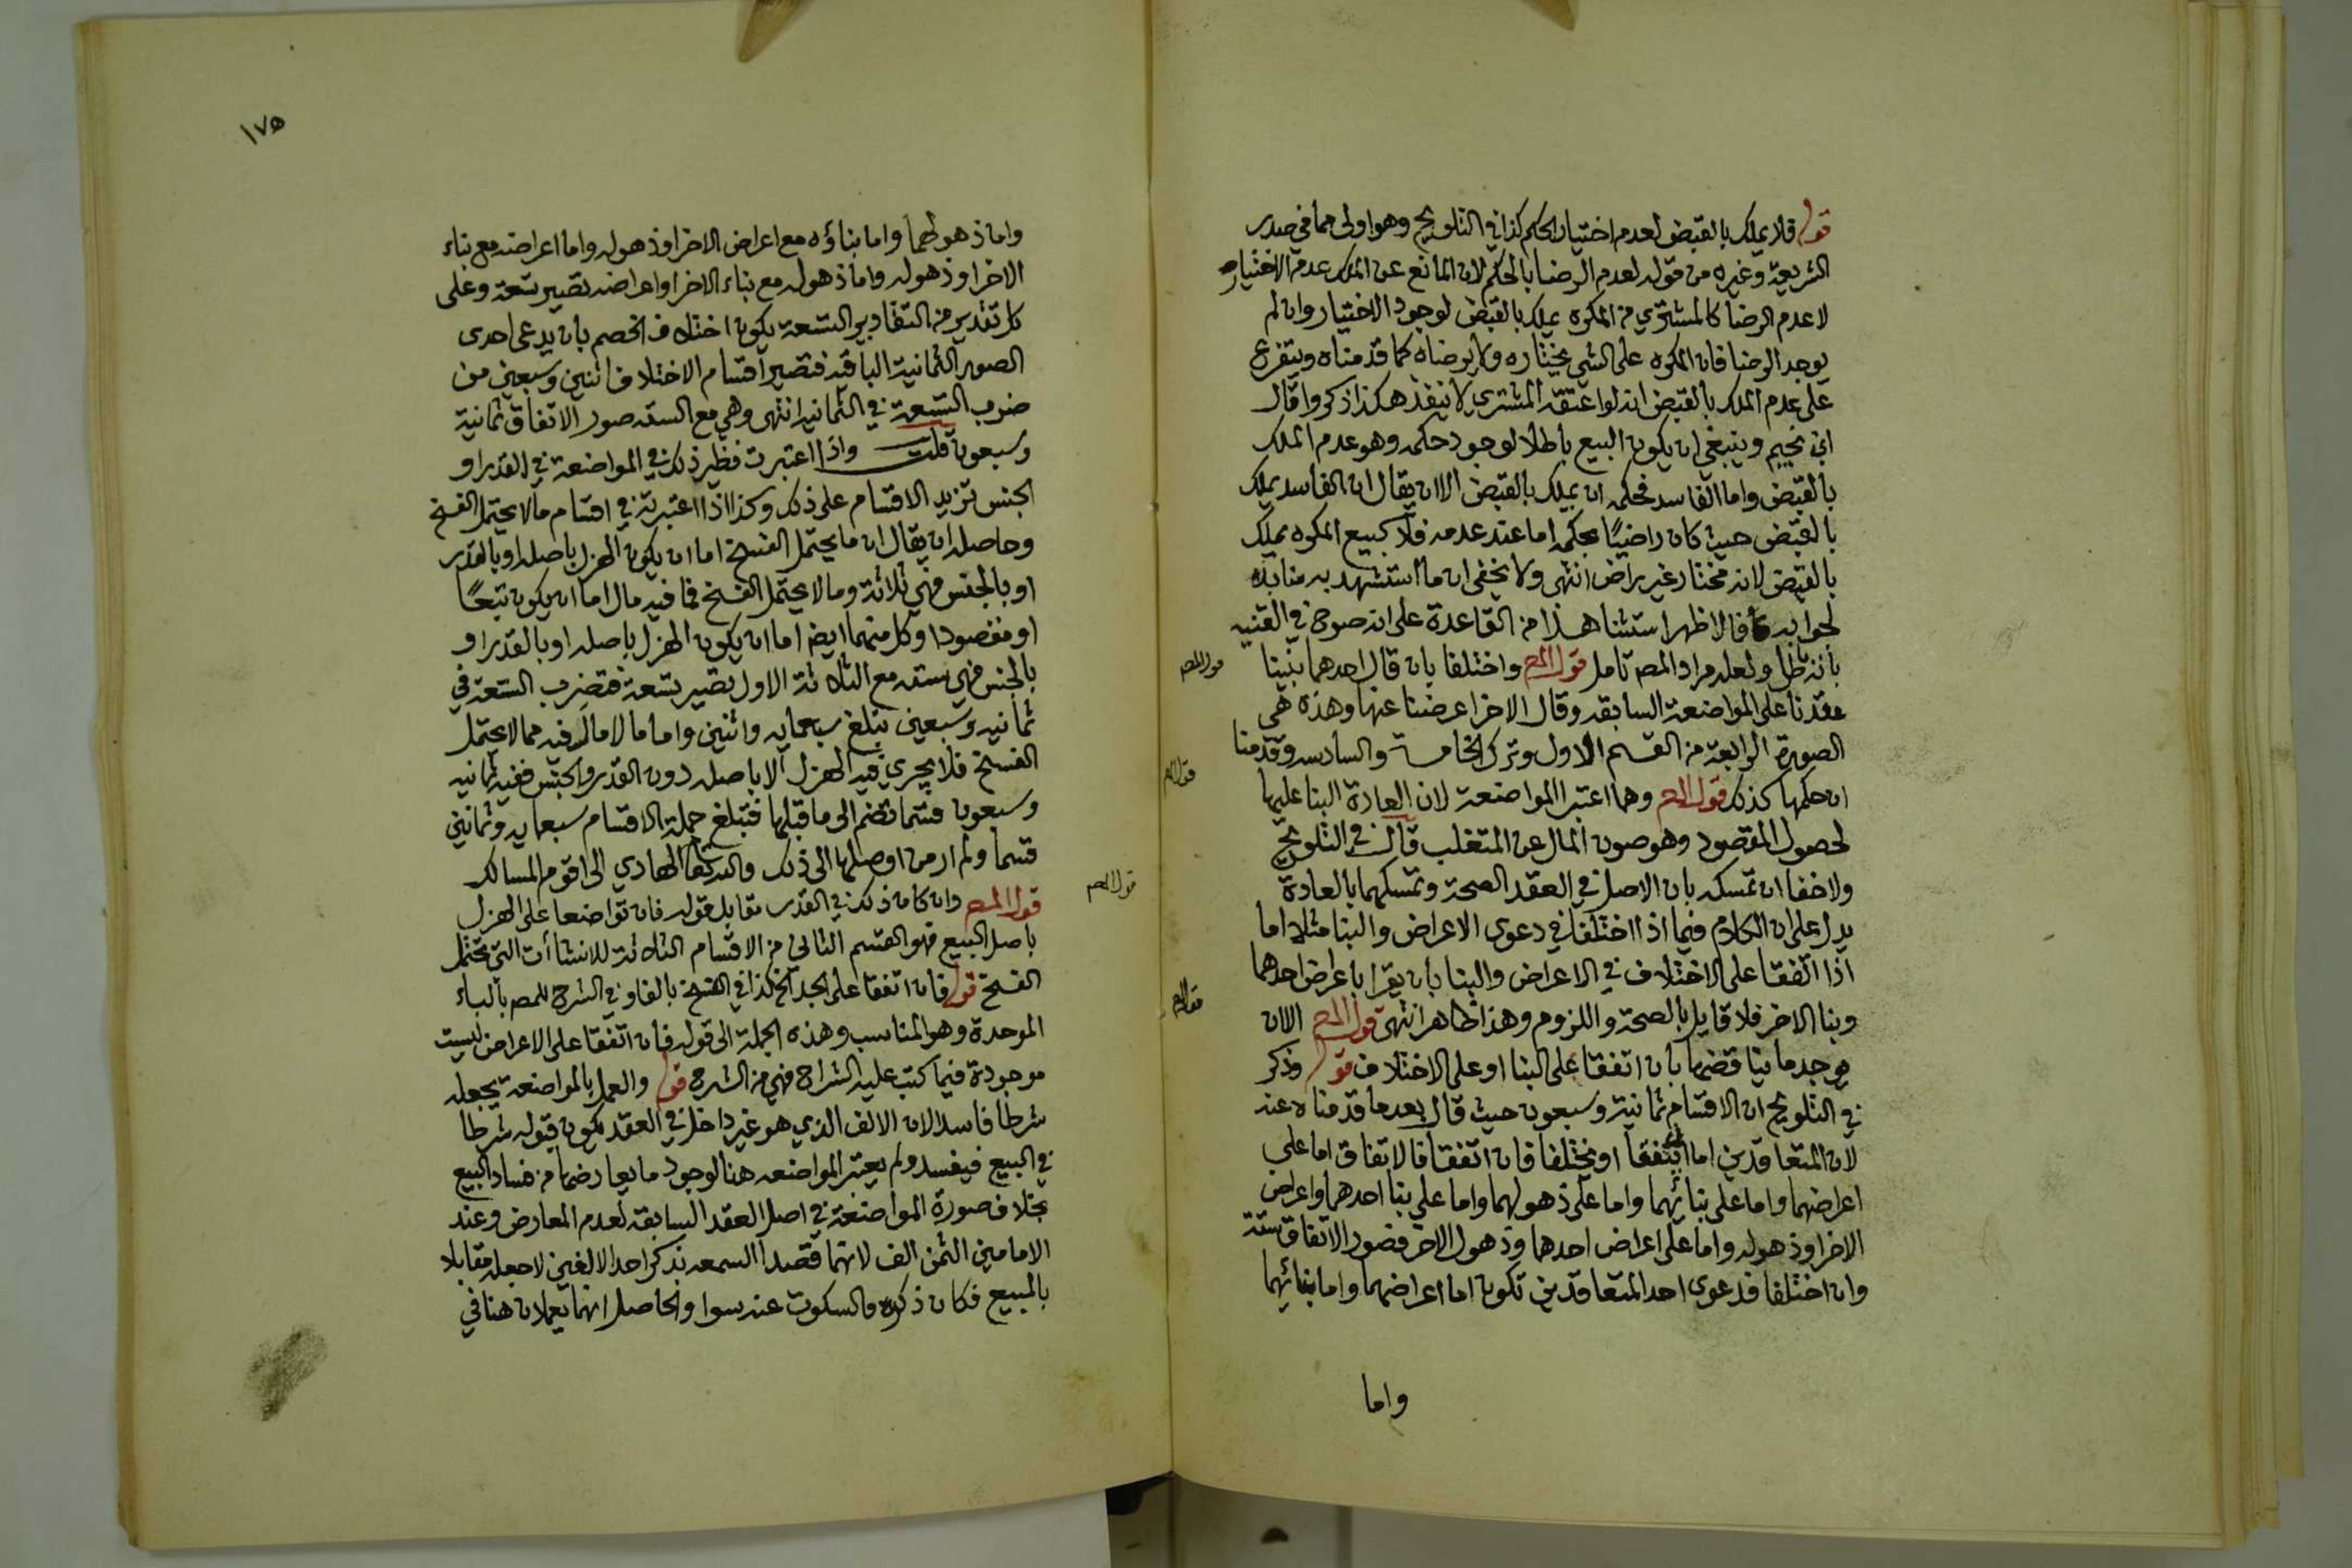 قوله فلا يملك بالقبض لعدم اختيار الحكم كذا في التلويح وهو اولى مما في صدر
الشريعة وغيره من قوله لعدم الرضا بالحكم لان المانع عن الملك عدم الاختيار
لا عدم الرضا كالمشتري من المكره يملك بالقبض لوجود الاختيار وان لم
يوجد الرضا فان المكره على الشي يختاره ولا يرضاه كما قدمناه ويتفرع
على عدم الملك بالقبض انه لو اعتقه المشتري لا ينفذ هكذا ذكروا قال
ابن نجيم وينبغي ان يكون البيع باطلا لوجود حكمه وهو عدم الملك
بالقبض واما الفاسد فحكمه ان يملك بالقبض الا ان يقال ان الفاسد يملك
بالقبض حيث كان راضيًا بحكمه اما عند عدمه فلا كبيع المكره يملك
بالقبض لانه مختار غير راض انتهى ولا يخفى ان ما استشهد به منابذه
لجوابه فالاظهر استثنا هذا من القاعدة على انه صرح في القنيه
بانه باطل ولعله مراد المص تامل قول المص واختلفا بان قال احدهما بنينا
عقدنا على المواضعة السابقه وقال الاخر اعرضنا عنها وهذه هي
الصورة الرابعة من القسم الاول وترك الخامسة والسادسه وقدمنا
ان حكمها كذلك قول المص وهما اعتبرا المواضعة لان العادة البنا عليها
لحصول المقصود وهو صون المال عن المتغلب قال في التلويح
ولا خفا ان تمسكه بان الاصل في العقد الصحة وتمسكهما بالعادة
يدل على ان الكلام فيما اذا اختلفا في دعوى الاعراض والبنا مثلا اما
اذا اتفقا على الاختلاف في الاعراض والبنا بان يقرا باعراض احدهما
وبنا الاخر فلا قايل بالصحة واللزوم وهذا ظاهر انتهى قول المص الا ان
يوجد ما يناقضها بان اتفقا على البنا او على الاختلاف قوله وذكر
في التلويح ان الاقسام ثمانية وسبعون حيث قال بعد ما قدمناه عنه
لان المتعاقدين اما ان يتفقا او يختلفا فان اتفقا فالاتفاق اما على
اعراضهما واما على بنائهما واما على ذهولهما واما على بنا احدهما واعراض
الاخر او ذهوله واما على اعراض احدهما وذهول الاخر فصور الاتفاق ستة
وان اختلفا فدعوى احد المتعاقدين تكون اما اعراضهما واما بنائهما
واما
قول المص
قول المص
قول المص
١٧٥
واما ذهولهما واما بناؤه مع اعراض الاخر او ذهوله واما اعراضه مع بناء
الاخر او ذهوله واما ذهوله مع بناء الاخر او اعراضه تصير تسعة وعلى
كل تقدير من التقادير التسعة يكون اختلاف الخصم بان يدعى احدى
الصور الثمانية الباقيه فتصير اقسام الاختلاف اثنين وسبعين من
ضرب التسعة في الثمانيه انتهى وهي مع السته صور الاتفاق ثمانية
وسبعون قلت واذا اعتبرت نظير ذلك في المواضعة في القدر او
الجنس تزيد الاقسام على ذلك وكذا اذا اعتبرته في اقسام ما لا يحتمل الفسخ
وحاصله ان يقال ان ما يحتمل الفسخ اما ان يكون الهزل باصله او بالقدر
او بالجنس فهي ثلاثة وما لا يحتمل الفسخ فما فيه مال اما ان يكون تبعًا
او مقصودا وكل منهما ايضا اما ان يكون الهزل باصله او بالقدر او
بالجنس فهي سته مع الثلاثة الاول تصير تسعة فتضرب التسعة في
ثمانيه وسبعين تبلغ سبعمايه واثنين واما ما لا مال فيه مما لا يحتمل
الفسخ فلا يجري فيه الهزل الا باصله دون القدر والجنس ففيه ثمانيه
وسبعون قسما تضم الى ما قبلها فتبلغ جملة الاقسام سبعمايه وثمانين
قسما ولم ار من اوصلها الى ذلك والله تعالى الهادي الى اقوم المسالك
قول المص وان كان ذلك في القدر مقابل قوله فان تواضعا على الهزل
باصل البيع فهو القسم الثاني من الاقسام الثلاثة للانشاآت التي تحتمل
الفسخ قوله فان اتفقا على الجد الخ كذا في النسخ بالفاء وفي الشرح للمص بالباء
الموحدة وهو المناسب وهذه الجملة الى قوله فان اتفقا على الاعراض ليست
موجودة فيما كتب عليه الشراح فهي من الشرح قوله والعمل بالمواضعة يجعله
شرطا فاسدا لان الالف الذي هو غير داخل في العقد يكون قبوله شرطا
في البيع فيفسد ولم يعتبر المواضعه هنا لوجود ما يعارضها من فساد البيع
بخلاف صورة المواضعة في اصل العقد السابقه لعدم المعارض وعند
الامامين الثمن الف لانهما قصدا السمعه بذكر احد الالفين لا جعله مقابلا
بالمبيع فكان ذكره والسكوت عنه سوا والحاصل انهما يعملان هنا في
قول المص